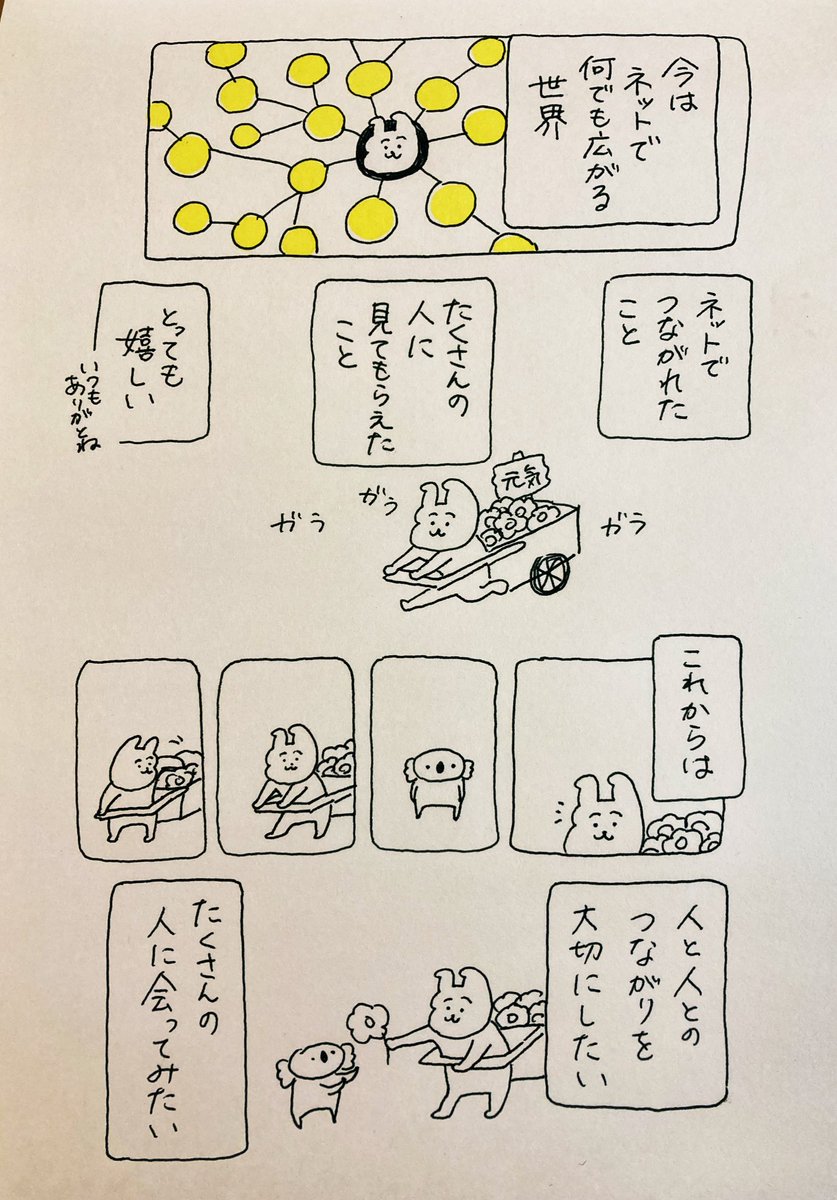 今は
ネットで
何でも広がる
世界
ネットで
つながれた
こと
たくさんの
人に
見てもらえた
こと
とっても
嬉しい
いつも
ありがとね
元気
ガラ
ガラ
ガラ
これからは
人と人との
つながりを
大切にしたい
たくさんの
人に会ってみたい